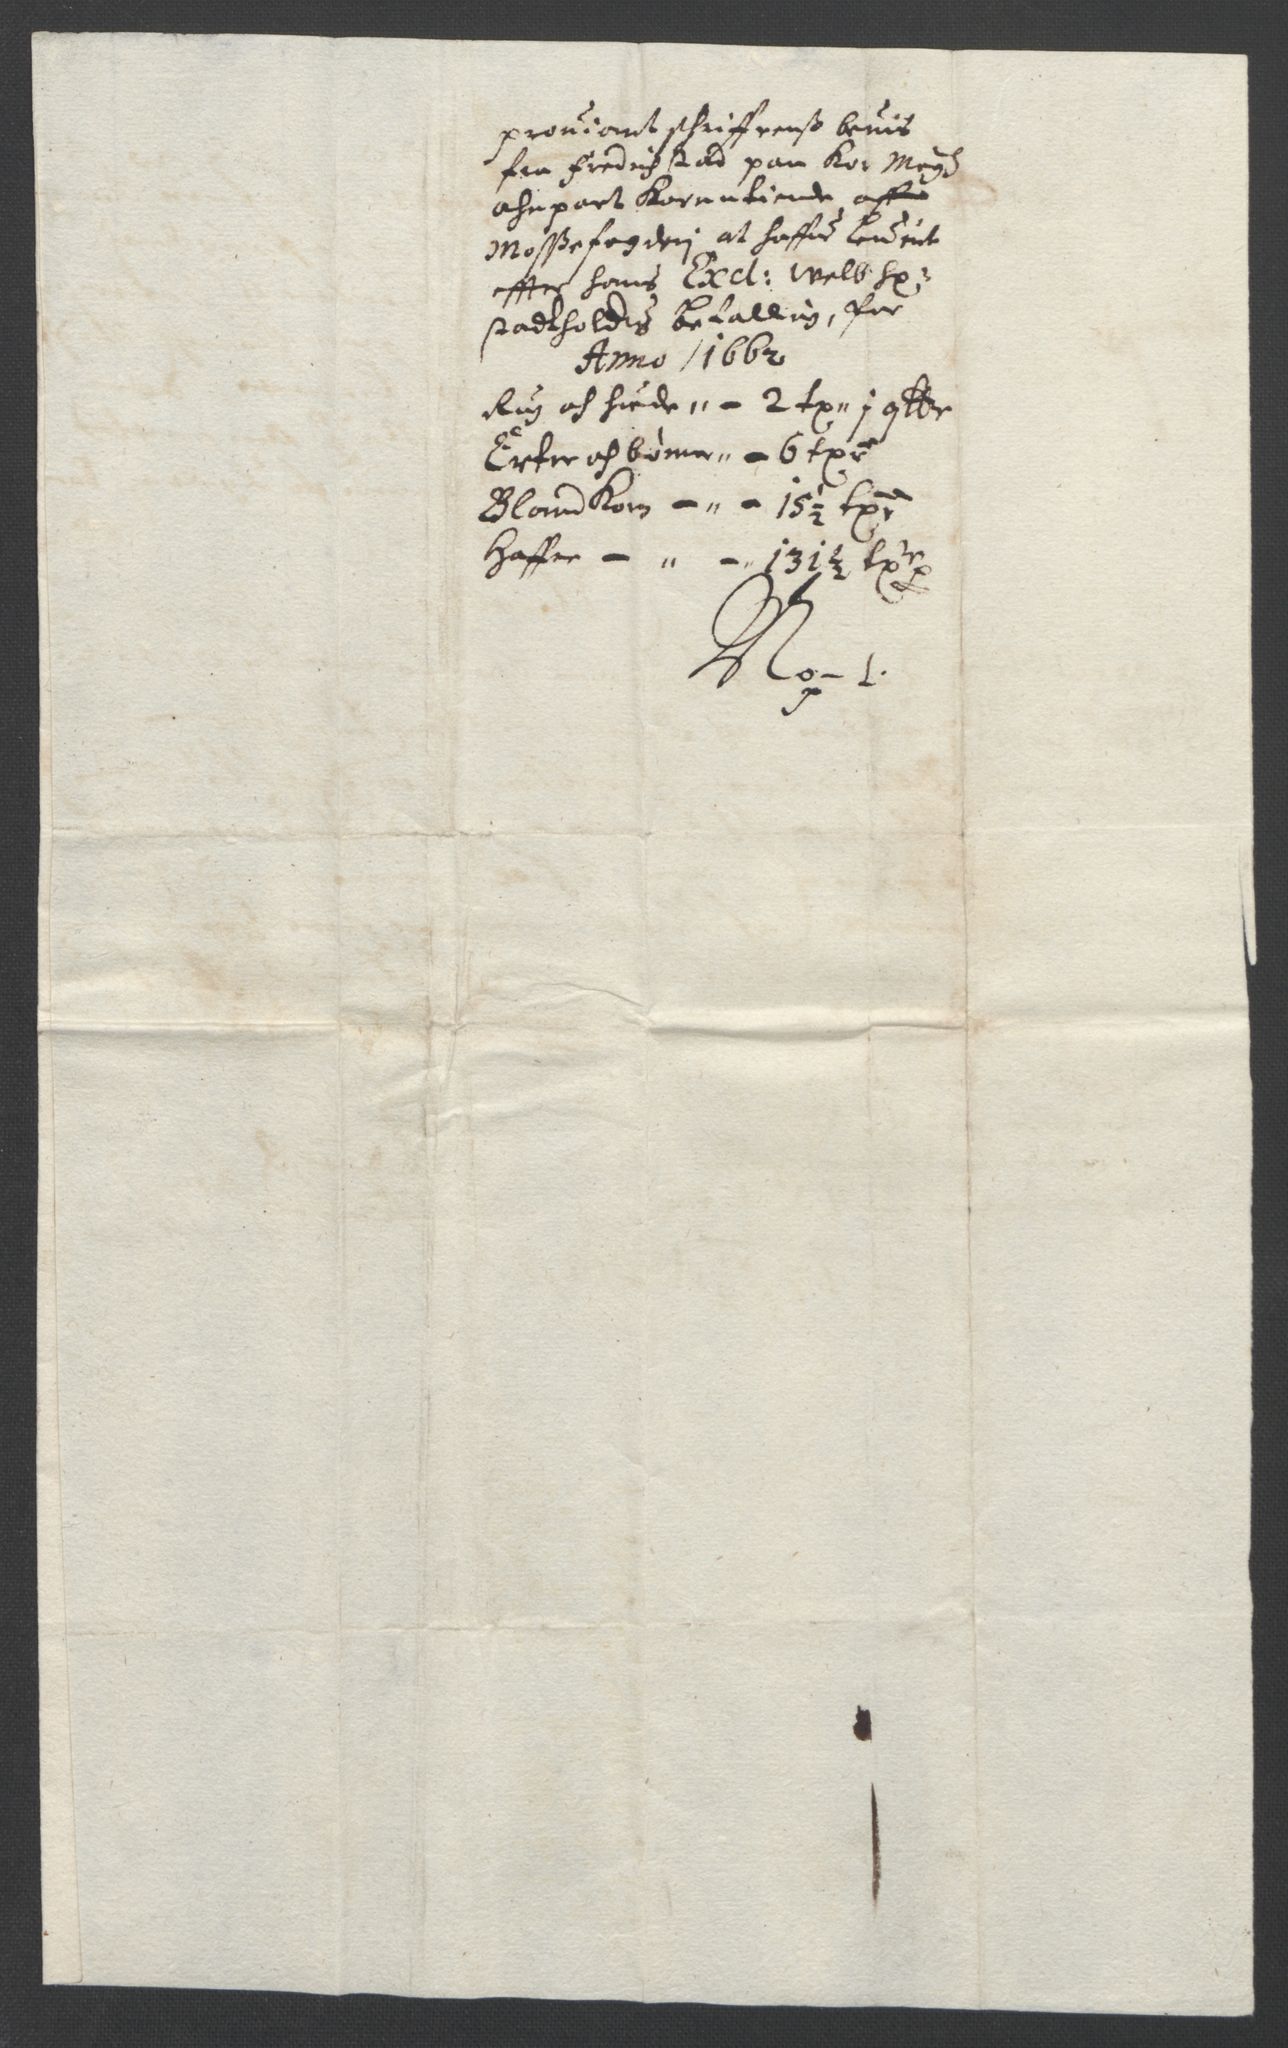 prouiant schriffrens beuis
fra fredrichstad paa Kor Mayts
ahnpart Kornntiende aff
Mosssefogderj at haffue leuerit
effter hans Excl: Welb. hr:
stadtholders befalling, for
Anno 1662
Rug och huede ,, - 2 tr ,, j qtr
Erter och bønner ,, - 6 tr
Bland Korn - ,, - 15½ tr
Haffre - ,, - ,, 131½ tr
No - 1.